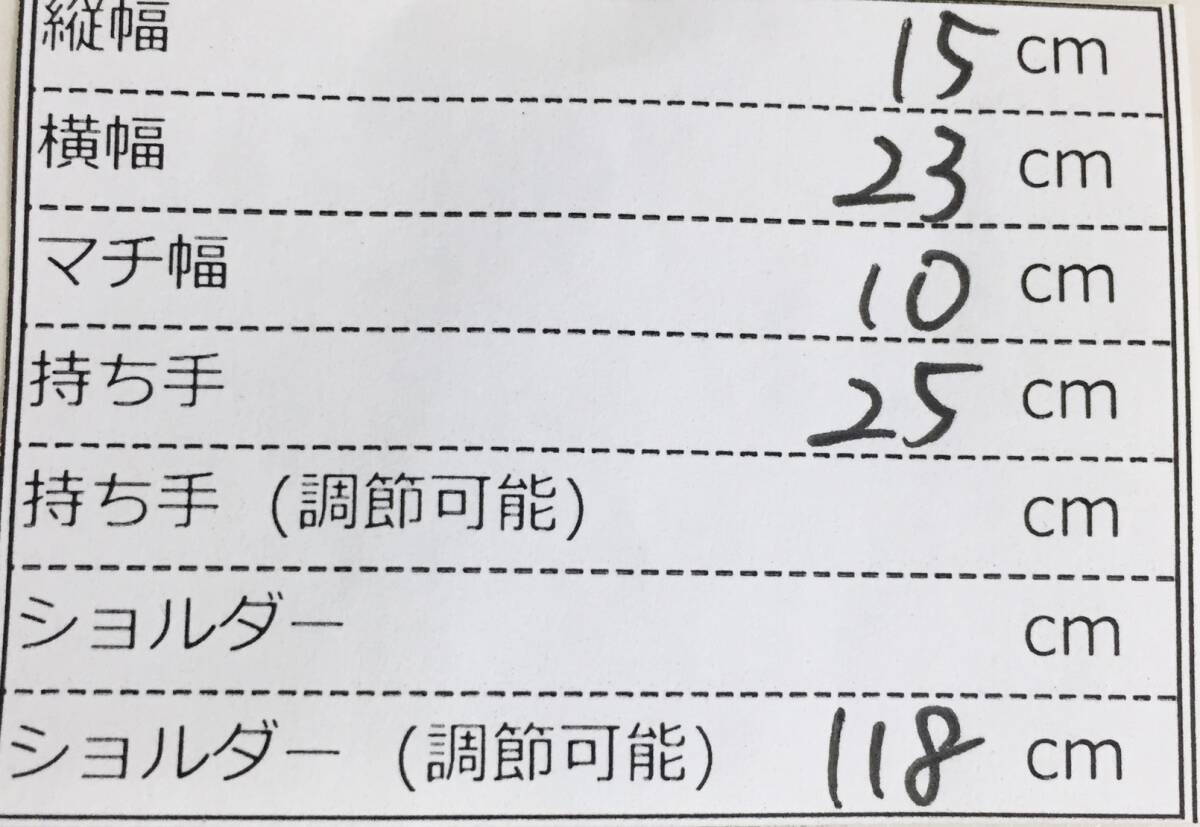 縦幅 15 cm
横幅 23 cm
マチ幅 10 cm
持ち手 25 cm
持ち手 (調節可能) cm
ショルダー cm
ショルダー (調節可能) 118 cm